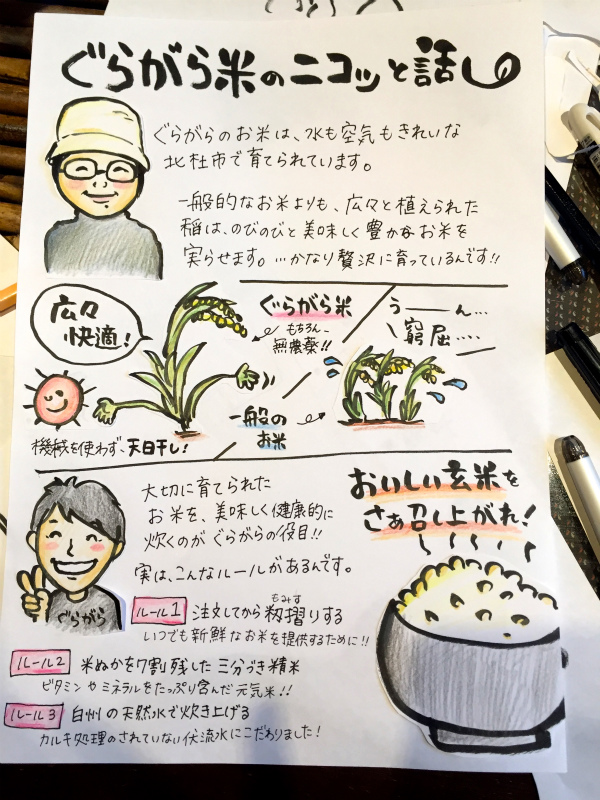 ぐらがら米のニコッと話し
ぐらがらのお米は、水も空気もきれいな
北杜市で育てられています。
一般的なお米よりも、広々と植えられた
稲は、のびのびと美味しく豊かなお米を
実らせます。…かなり贅沢に育っているんです!!
広々
快適!
ぐらがら米
もちろん
無農薬!!
うーーん…
窮屈‥‥
一般の
お米
機械を使わず、天日干し!
大切に育てられた
お米を、美味しく健康的に
炊くのがぐらがらの役目!!
実は、こんなルールがあるんです。
おいしい玄米を
さぁ召し上がれ!
ぐらがら
ルール1 注文してから籾摺りする
もみす
いつでも新鮮なお米を提供するために!!
ルール2 米ぬかを7割残した三分づき精米
ビタミンやミネラルをたっぷり含んだ元気米!!
ルール3 白州の天然水で炊き上げる
カルキ処理のされていない伏流水にこだわりました!